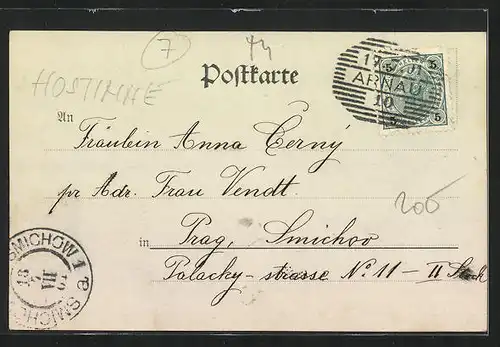 7
44
HOSTINNÉ
Postkarte
ARNAU
10
5 5
5 5
An
Fräulein Anna Černý
pr Adr. Frau Wendt.
200
in Prag, Smichov
Palacky-strasse No. 11 - II Stock
SMICHOW 1
VII
SMICHOV a